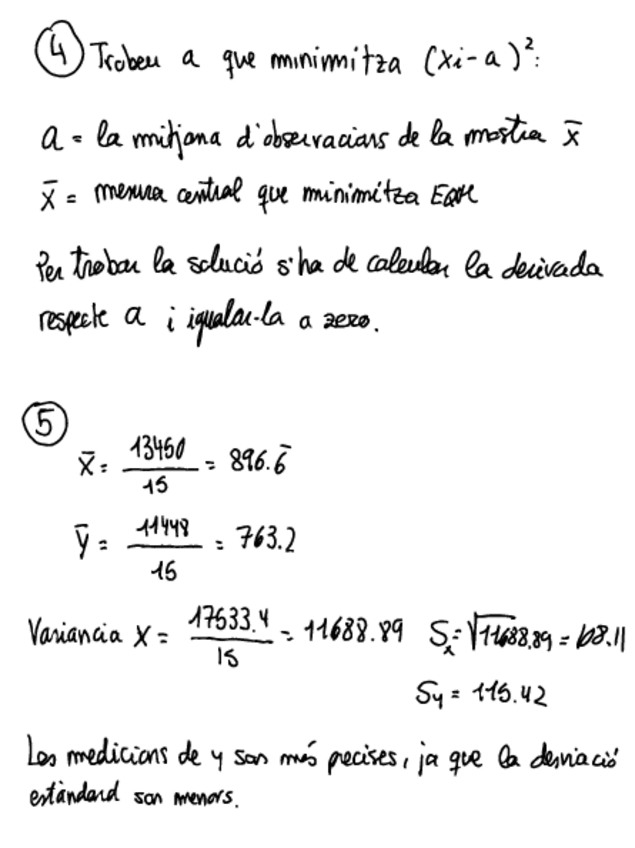 ④ Trobeu a que minimitza (xi-a)²:
a = la mitjana d'observacions de la mostra x̄
x̄ = mesura central que minimitza EQM
Per trobar la solució s'ha de calcular la derivada
respecte a i igualar-la a zero.
⑤
x̄ = 13450 / 15 = 896.6̄
ȳ = 11448 / 15 = 763.2
Variancia X = 17533.4 / 15 = 11688.89 Sₓ = √11688.89 = 108.11
Sy = 115.42
Les medicions de y son més precises, ja que la desviació
estàndard son menors.